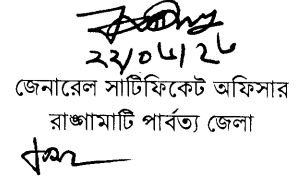 ২২/০৬/২৬
জেনারেল সার্টিফিকেট অফিসার
রাঙ্গামাটি পার্বত্য জেলা